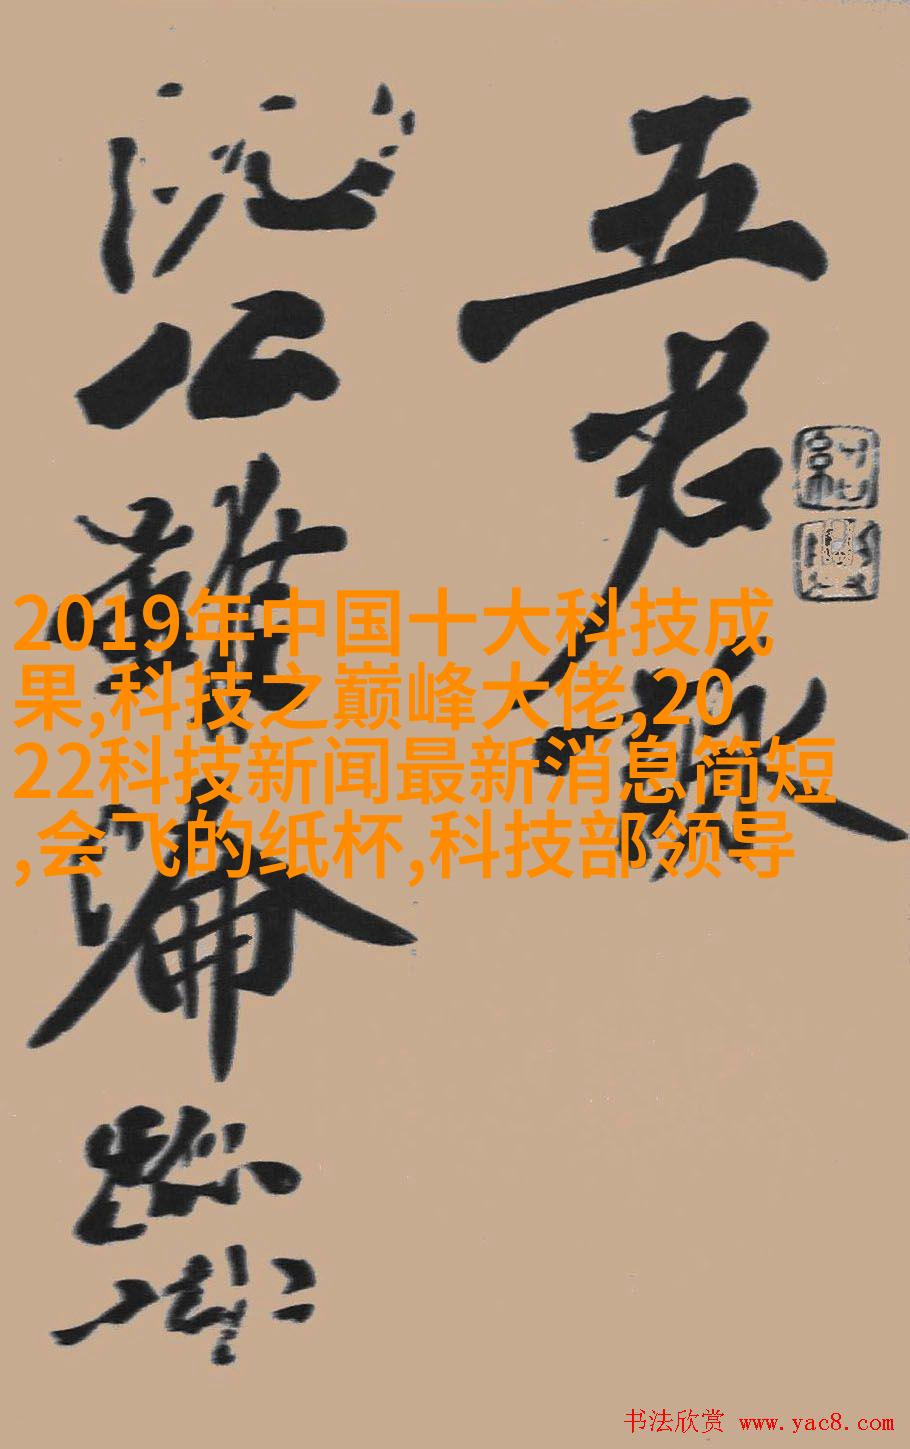 五君詠
阮公雖淪跡
2019年中国十大科技成
果,科技之巅峰大佬,20
22科技新闻最新消息简短
,会飞的纸杯,科技部领导
书法欣赏 www.yac8.com